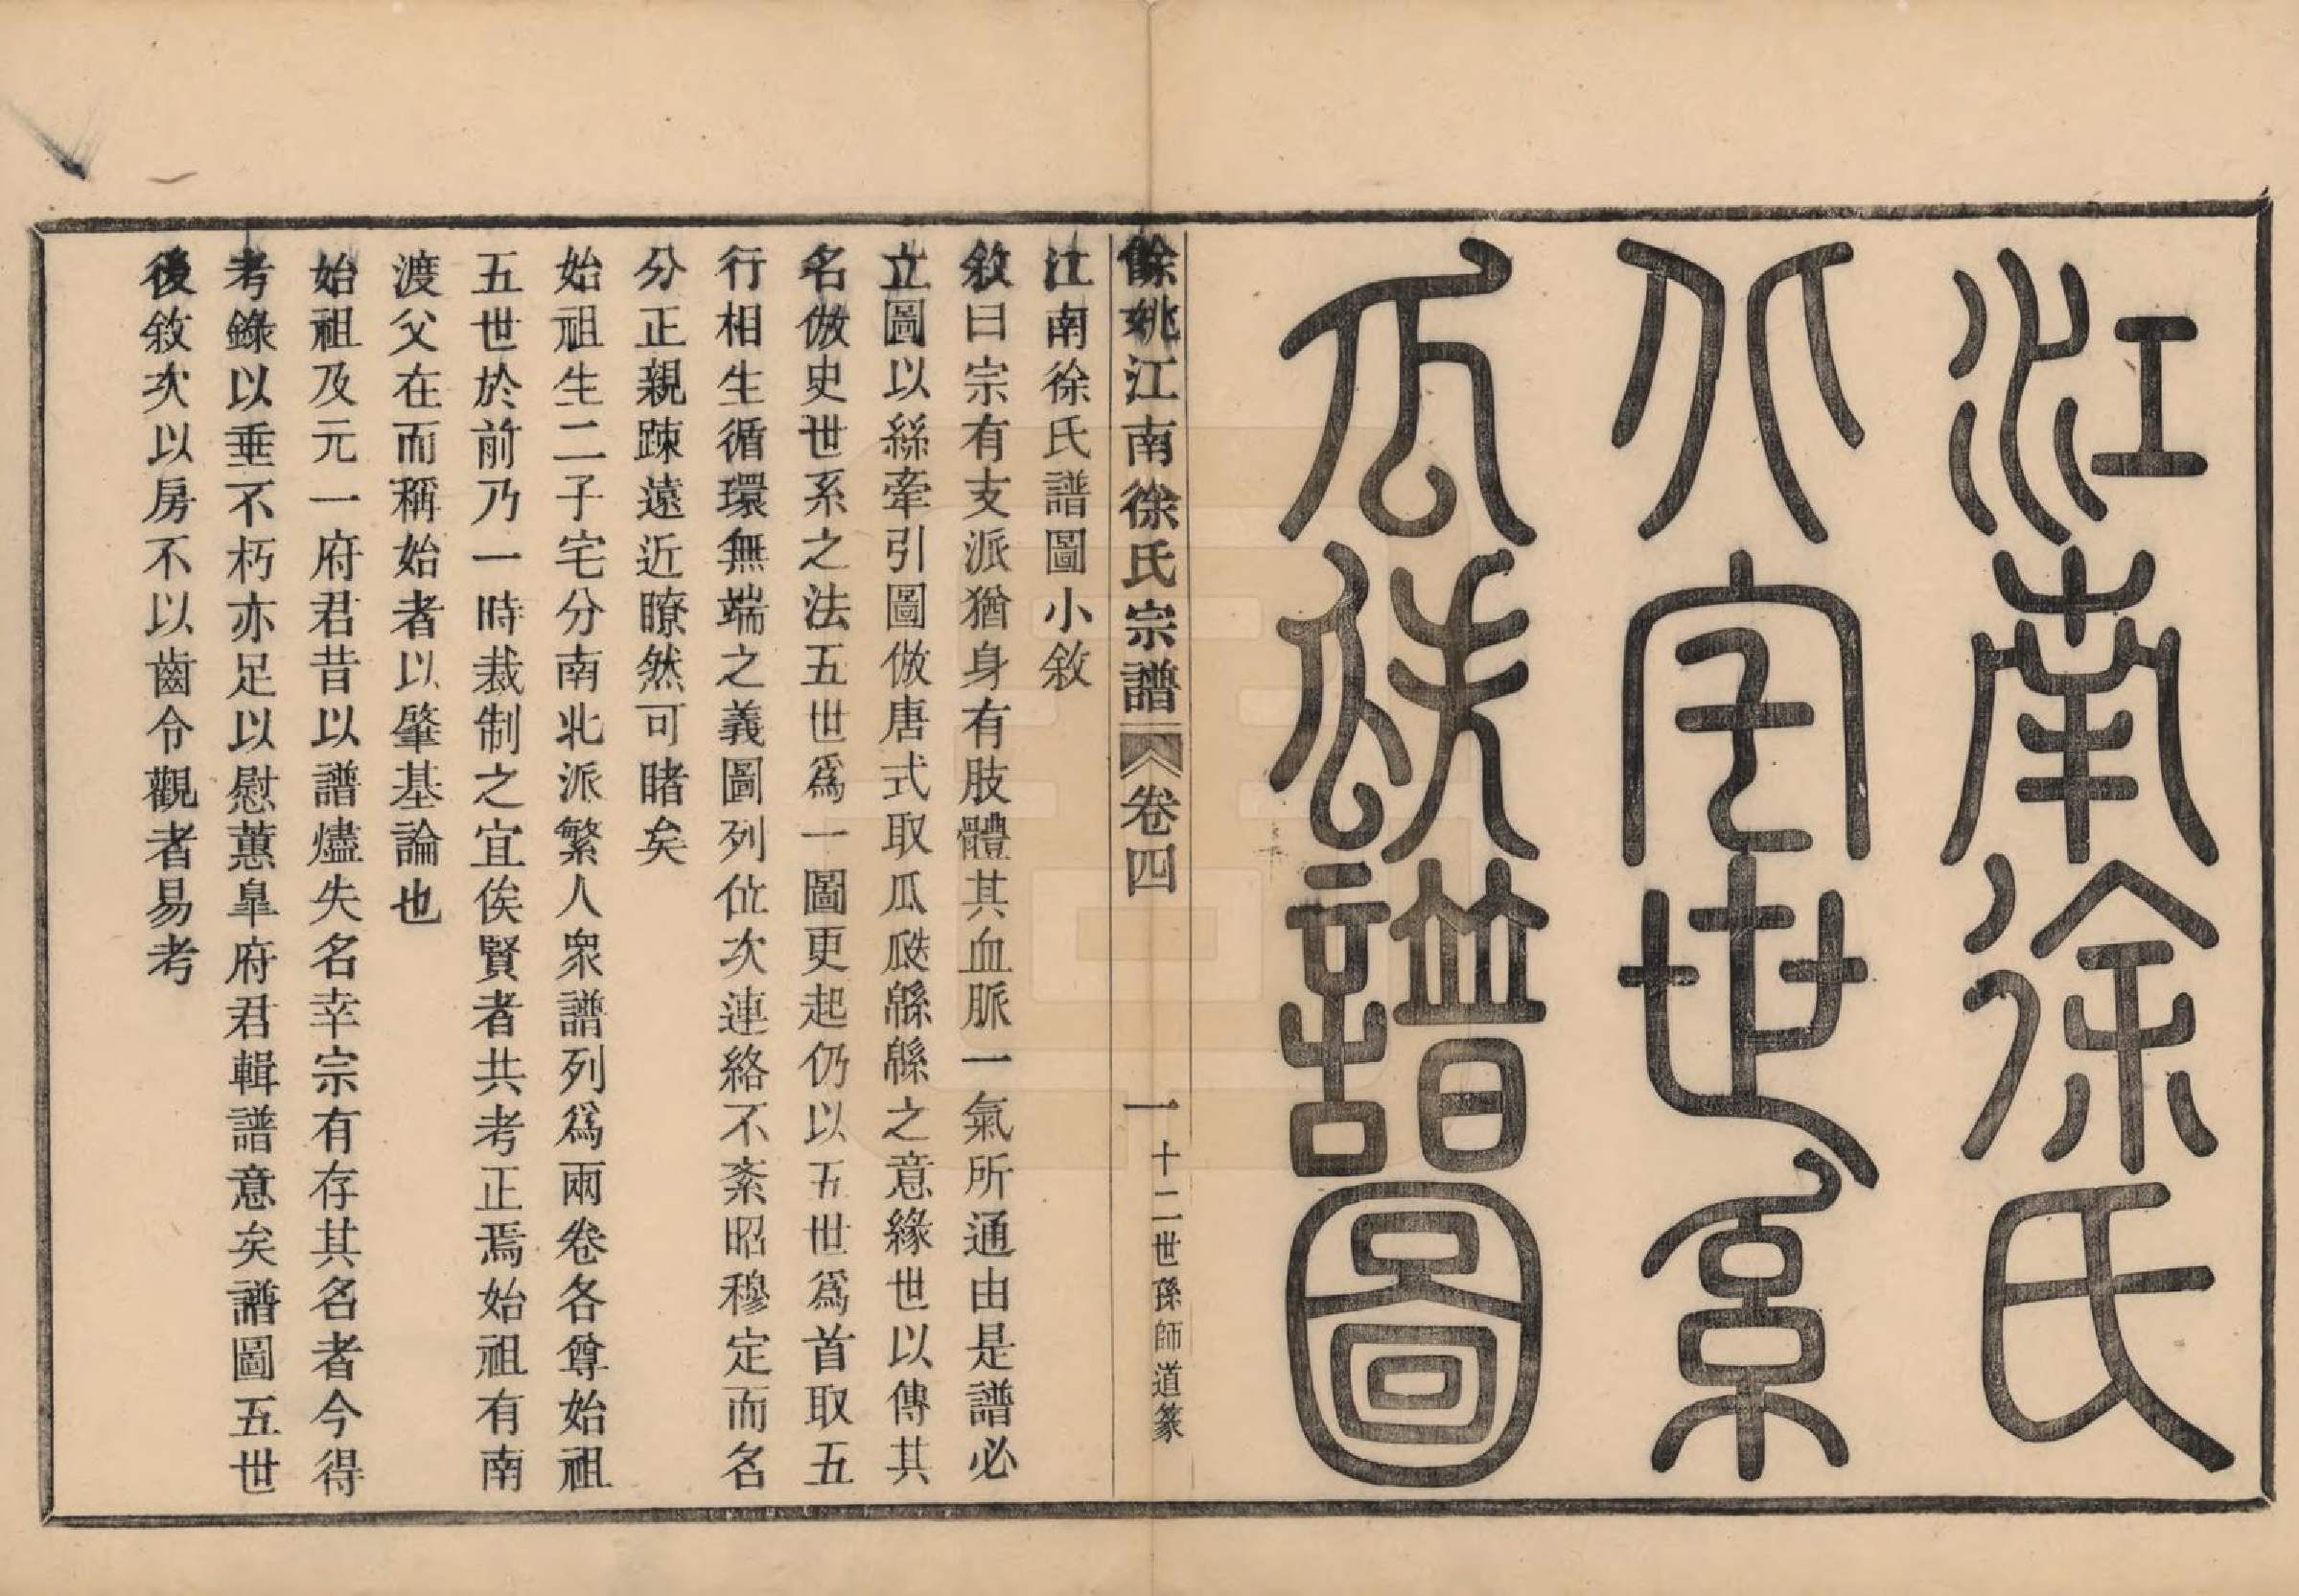 江南徐氏
八字世系
瓜瓞譜圖
十二世孫師道篆
餘姚江南徐氏宗譜 卷四 一
江南徐氏譜圖小敘
敘曰宗有支派猶身有肢體其血脈一氣所通由是譜必
立圖以絲牽引圖倣唐式取瓜瓞緜緜之意緣世以傳其
名倣史世系之法五世爲一圖更起仍以五世爲首取五
行相生循環無端之義圖列位次連絡不紊昭穆定而名
分正親踈遠近瞭然可睹矣
始祖生二子宅分南北派繁人衆譜列爲兩卷各尊始祖
五世於前乃一時裁制之宜俟賢者共考正焉始祖有南
渡父在而稱始者以肇基論也
始祖及元一府君昔以譜燼失名幸宗有存其名者今得
考錄以垂不朽亦足以慰蕙臯府君輯譜意矣譜圖五世
後敘次以房不以齒令觀者易考